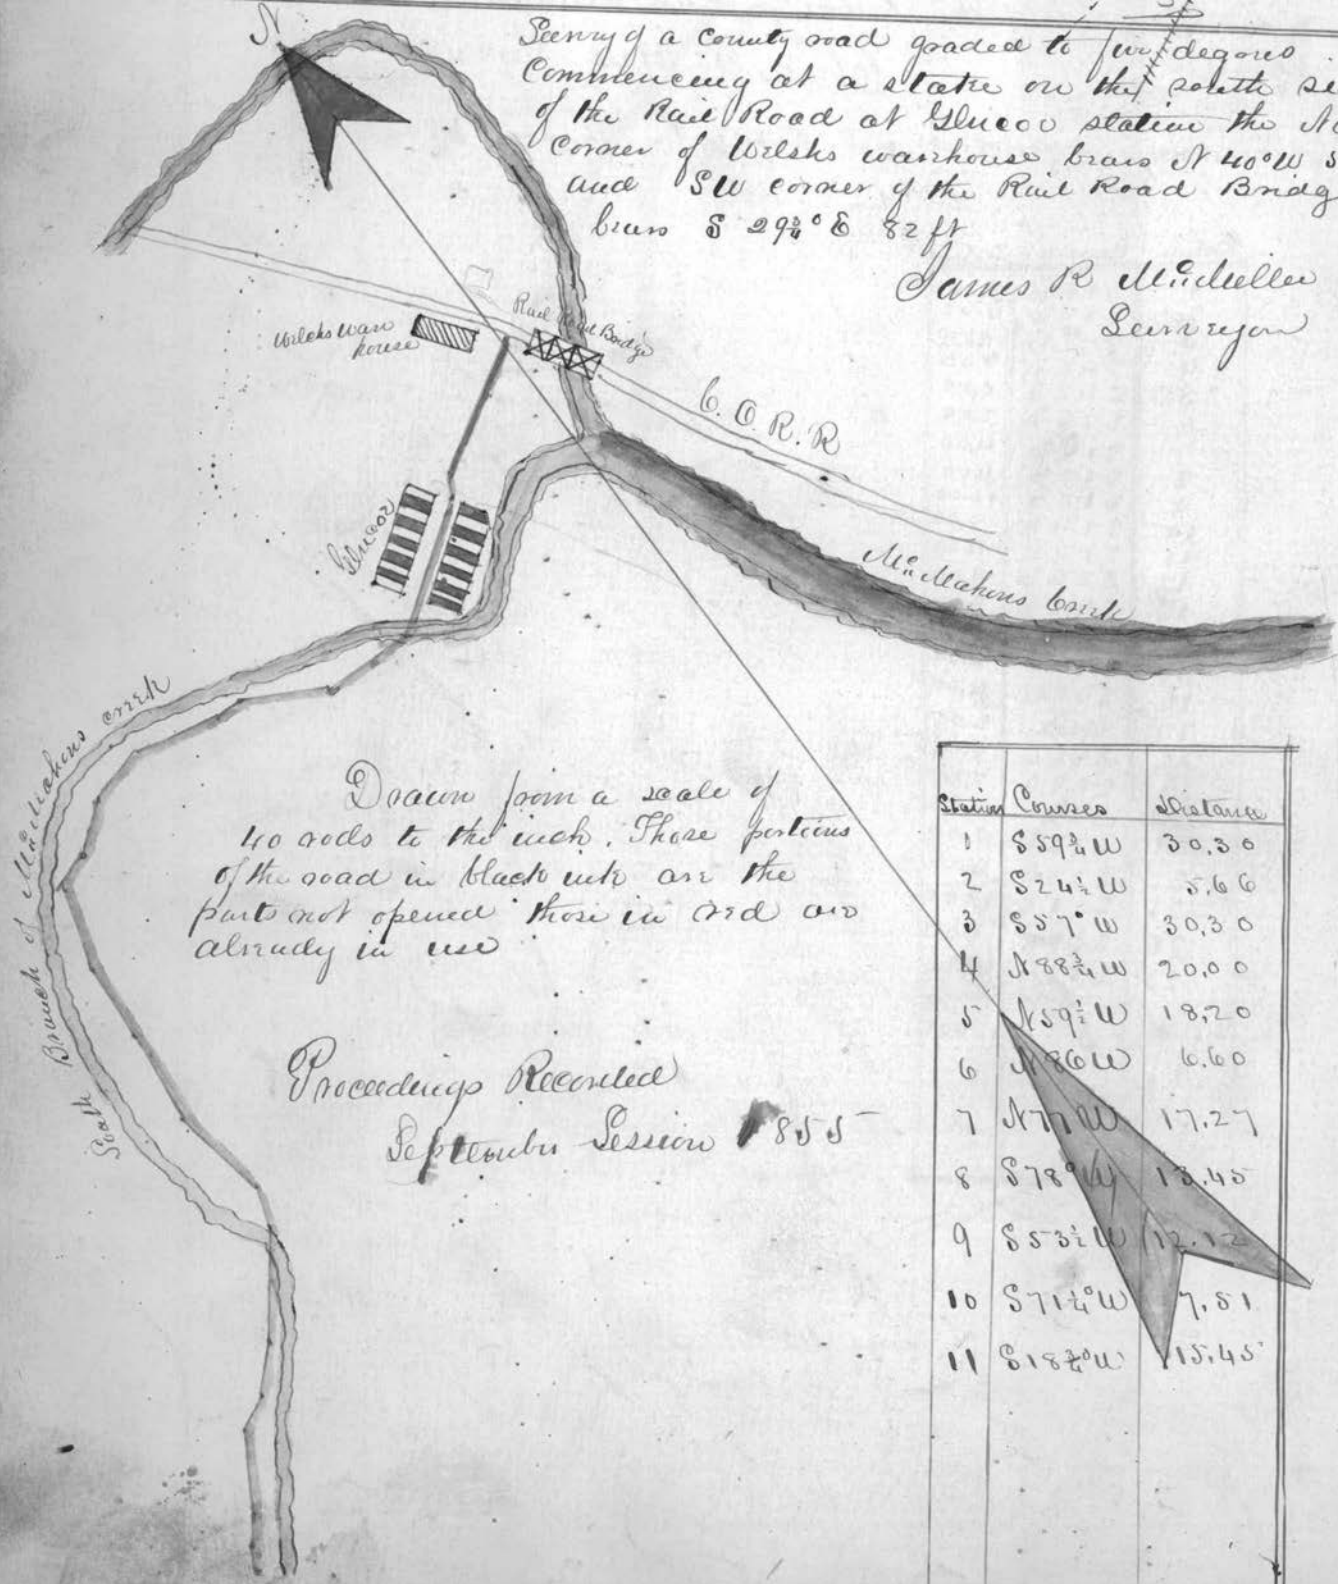 N
Survey of a county road graded to five degrees
Commencing at a stake on the south si
of the Rail Road at Glencoe station the No
Corner of Welshs warehouse bears N 40° W 5
and SW corner of the Rail Road Bridg
bears S 29¾° E 82 ft
James R McMullen
Surveyor
Welshs Ware
house
Rail Road Bridge
C. O. R. R
Glencoe
McMahons Creek
South Branch of McMahons creek
Drawn from a scale of
40 rods to the inch. Those portions
of the road in black ink are the
parts not opened those in red are
already in use
Proceedings Recorded
September Session 1855
Station Courses Distance
1 S 59¾ W 30,30
2 S 24½ W 5,66
3 S 57° W 30,30
4 N 88¾ W 20,00
5 N 59½ W 18,20
6 N 86 W 6.60
7 N 77 W 17,27
8 S 78° W 13,45
9 S 53½ W 12.12
10 S 71¼° W 7,51
11 S 18¾° W 15,45